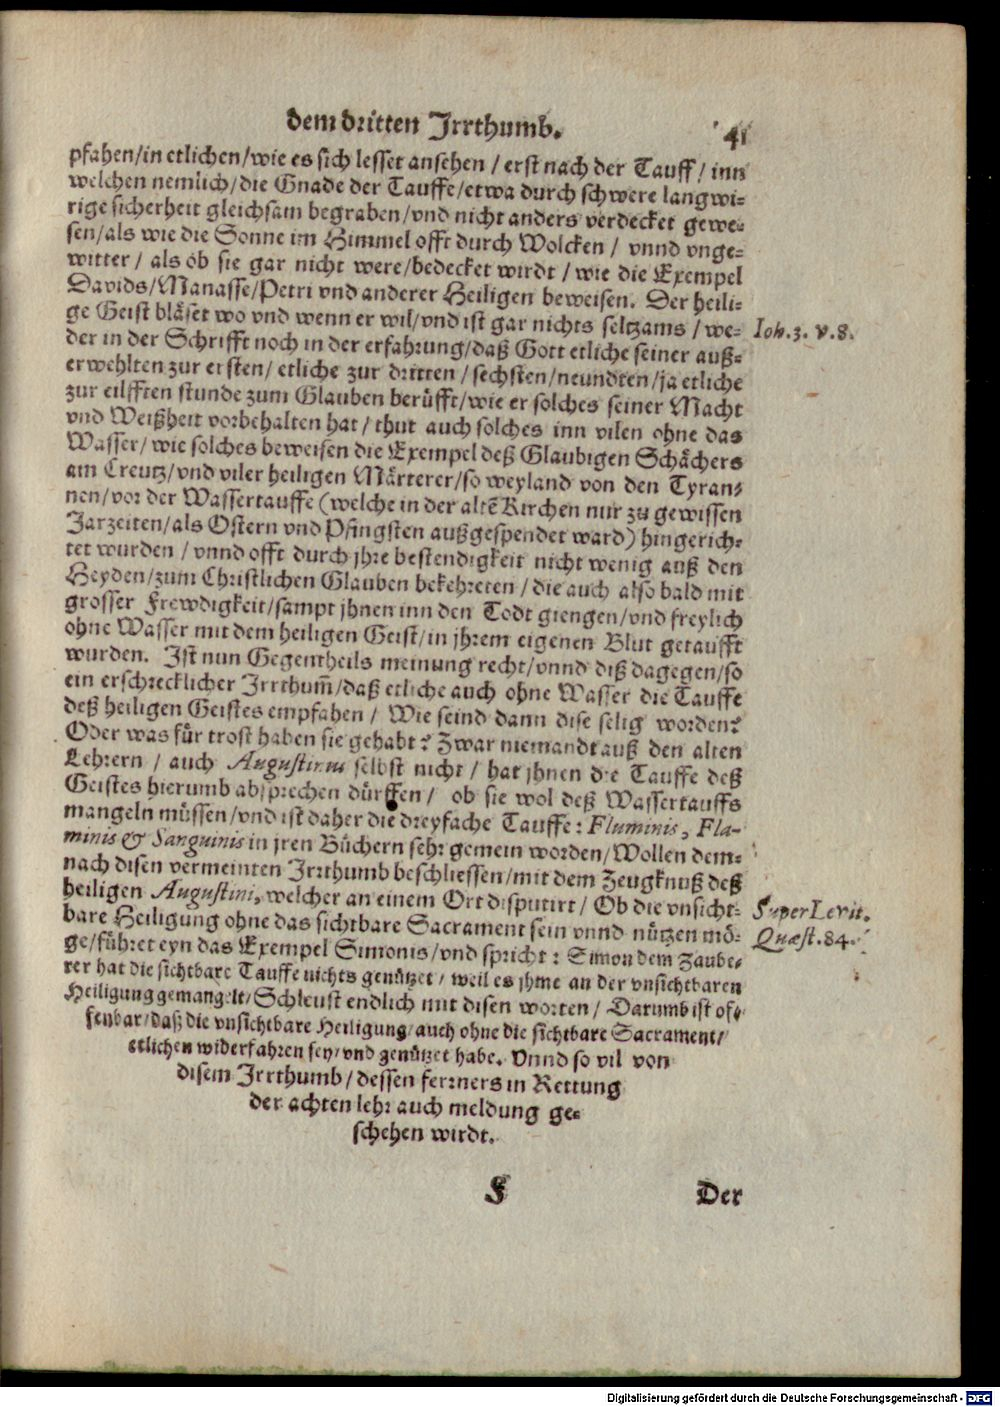 dem dritten Jrrthumb. 41
pfahen/in etlichen/wie es sich lesset ansehen / erst nach der Tauff / inn
welchen nemlich/die Gnade der Tauffe/etwa durch schwere langwi-
rige sicherheit gleichsam begraben/vnd nicht anders verdecket gewe-
sen/als wie die Sonne im Himmel offt durch Wolcken / vnnd vnge-
witter / als ob sie gar nicht were/bedecket wirdt / wie die Exempel
Davids/Manasse/Petri vnd anderer Heiligen beweisen. Der heili-
ge Geist bläset wo vnd wenn er wil/vnd ist gar nichts seltzams / we- Ioh. 3. v. 8.
der in der Schrifft noch in der erfahrung/daß Gott etliche seiner auß-
erwehlten zur ersten/ etliche zur dritten / sechsten/neundten/ja etliche
zur eilfften stunde zum Glauben berüfft/wie er solches seiner Macht
vnd Weißheit vorbehalten hat / thut auch solches inn vilen ohne das
Wasser/ wie solches beweisen die Exempel deß Glaubigen Schächers
am Creutz/vnd viler heiligen Märterer/so weyland von den Tyran-
nen/vor der Wassertauffe (welche in der altē Kirchen nur zu gewissen
Jarzeiten/als Ostern vnd Pfingsten außgespendet ward) hingerich-
tet wurden / vnnd offt durch jhre bestendigkeit nicht wenig auß den
Heyden/zum Christlichen Glauben bekehreten / die auch also bald mit
grosser Frewdigkeit/sampt jhnen inn den Todt giengen/vnd freylich
ohne Wasser mit dem heiligen Geist/in jhrem eigenen Blut getaufft
wurden. Ist nun Gegentheils meinung recht/vnnd diß dagegen/so
ein erschrecklicher Irrthum̃/daß etliche auch ohne Wasser die Tauffe
deß heiligen Geistes empfahen / Wie seind dann dise selig worden?
Oder was für trost haben sie gehabt? Zwar niemandt auß den alten
Lehrern / auch Augustinus selbst nicht / hat jhnen die Tauffe deß
Geistes hierumb absprechen dürffen / ob sie wol deß Wassertauffs
mangeln müssen/vnd ist daher die dreyfache Tauffe: Fluminis, Fla-
minis & Sanguinis in jren Büchern sehr gemein worden/Wollen dem-
nach disen vermeinten Irrthumb beschliessen/mit dem Zeugknuß deß
heiligen Augustini, welcher an einem Ort disputirt / Ob die vnsicht- Super Levit.
bare Heiligung ohne das sichtbare Sacrament sein vnnd nützen mö- Quæst. 84.
ge/führet eyn das Exempel Simonis/vnd spricht: Simon dem Zaube-
rer hat die sichtbare Tauffe nichts genützet / weil es jhme an der vnsichtbaren
Heiligung gemangelt/Schleust endlich mit disen worten / Darumb ist of-
fenbar/daß die vnsichtbare Heiligung/auch ohne die sichtbare Sacrament/
etlichen widerfahren sey/vnd genützet habe. Vnnd so vil von
disem Irrthumb / dessen ferrners in Rettung
der achten lehr auch meldung ge-
schehen wirdt.
F Der
Digitalisierung gefördert durch die Deutsche Forschungsgemeinschaft - DFG